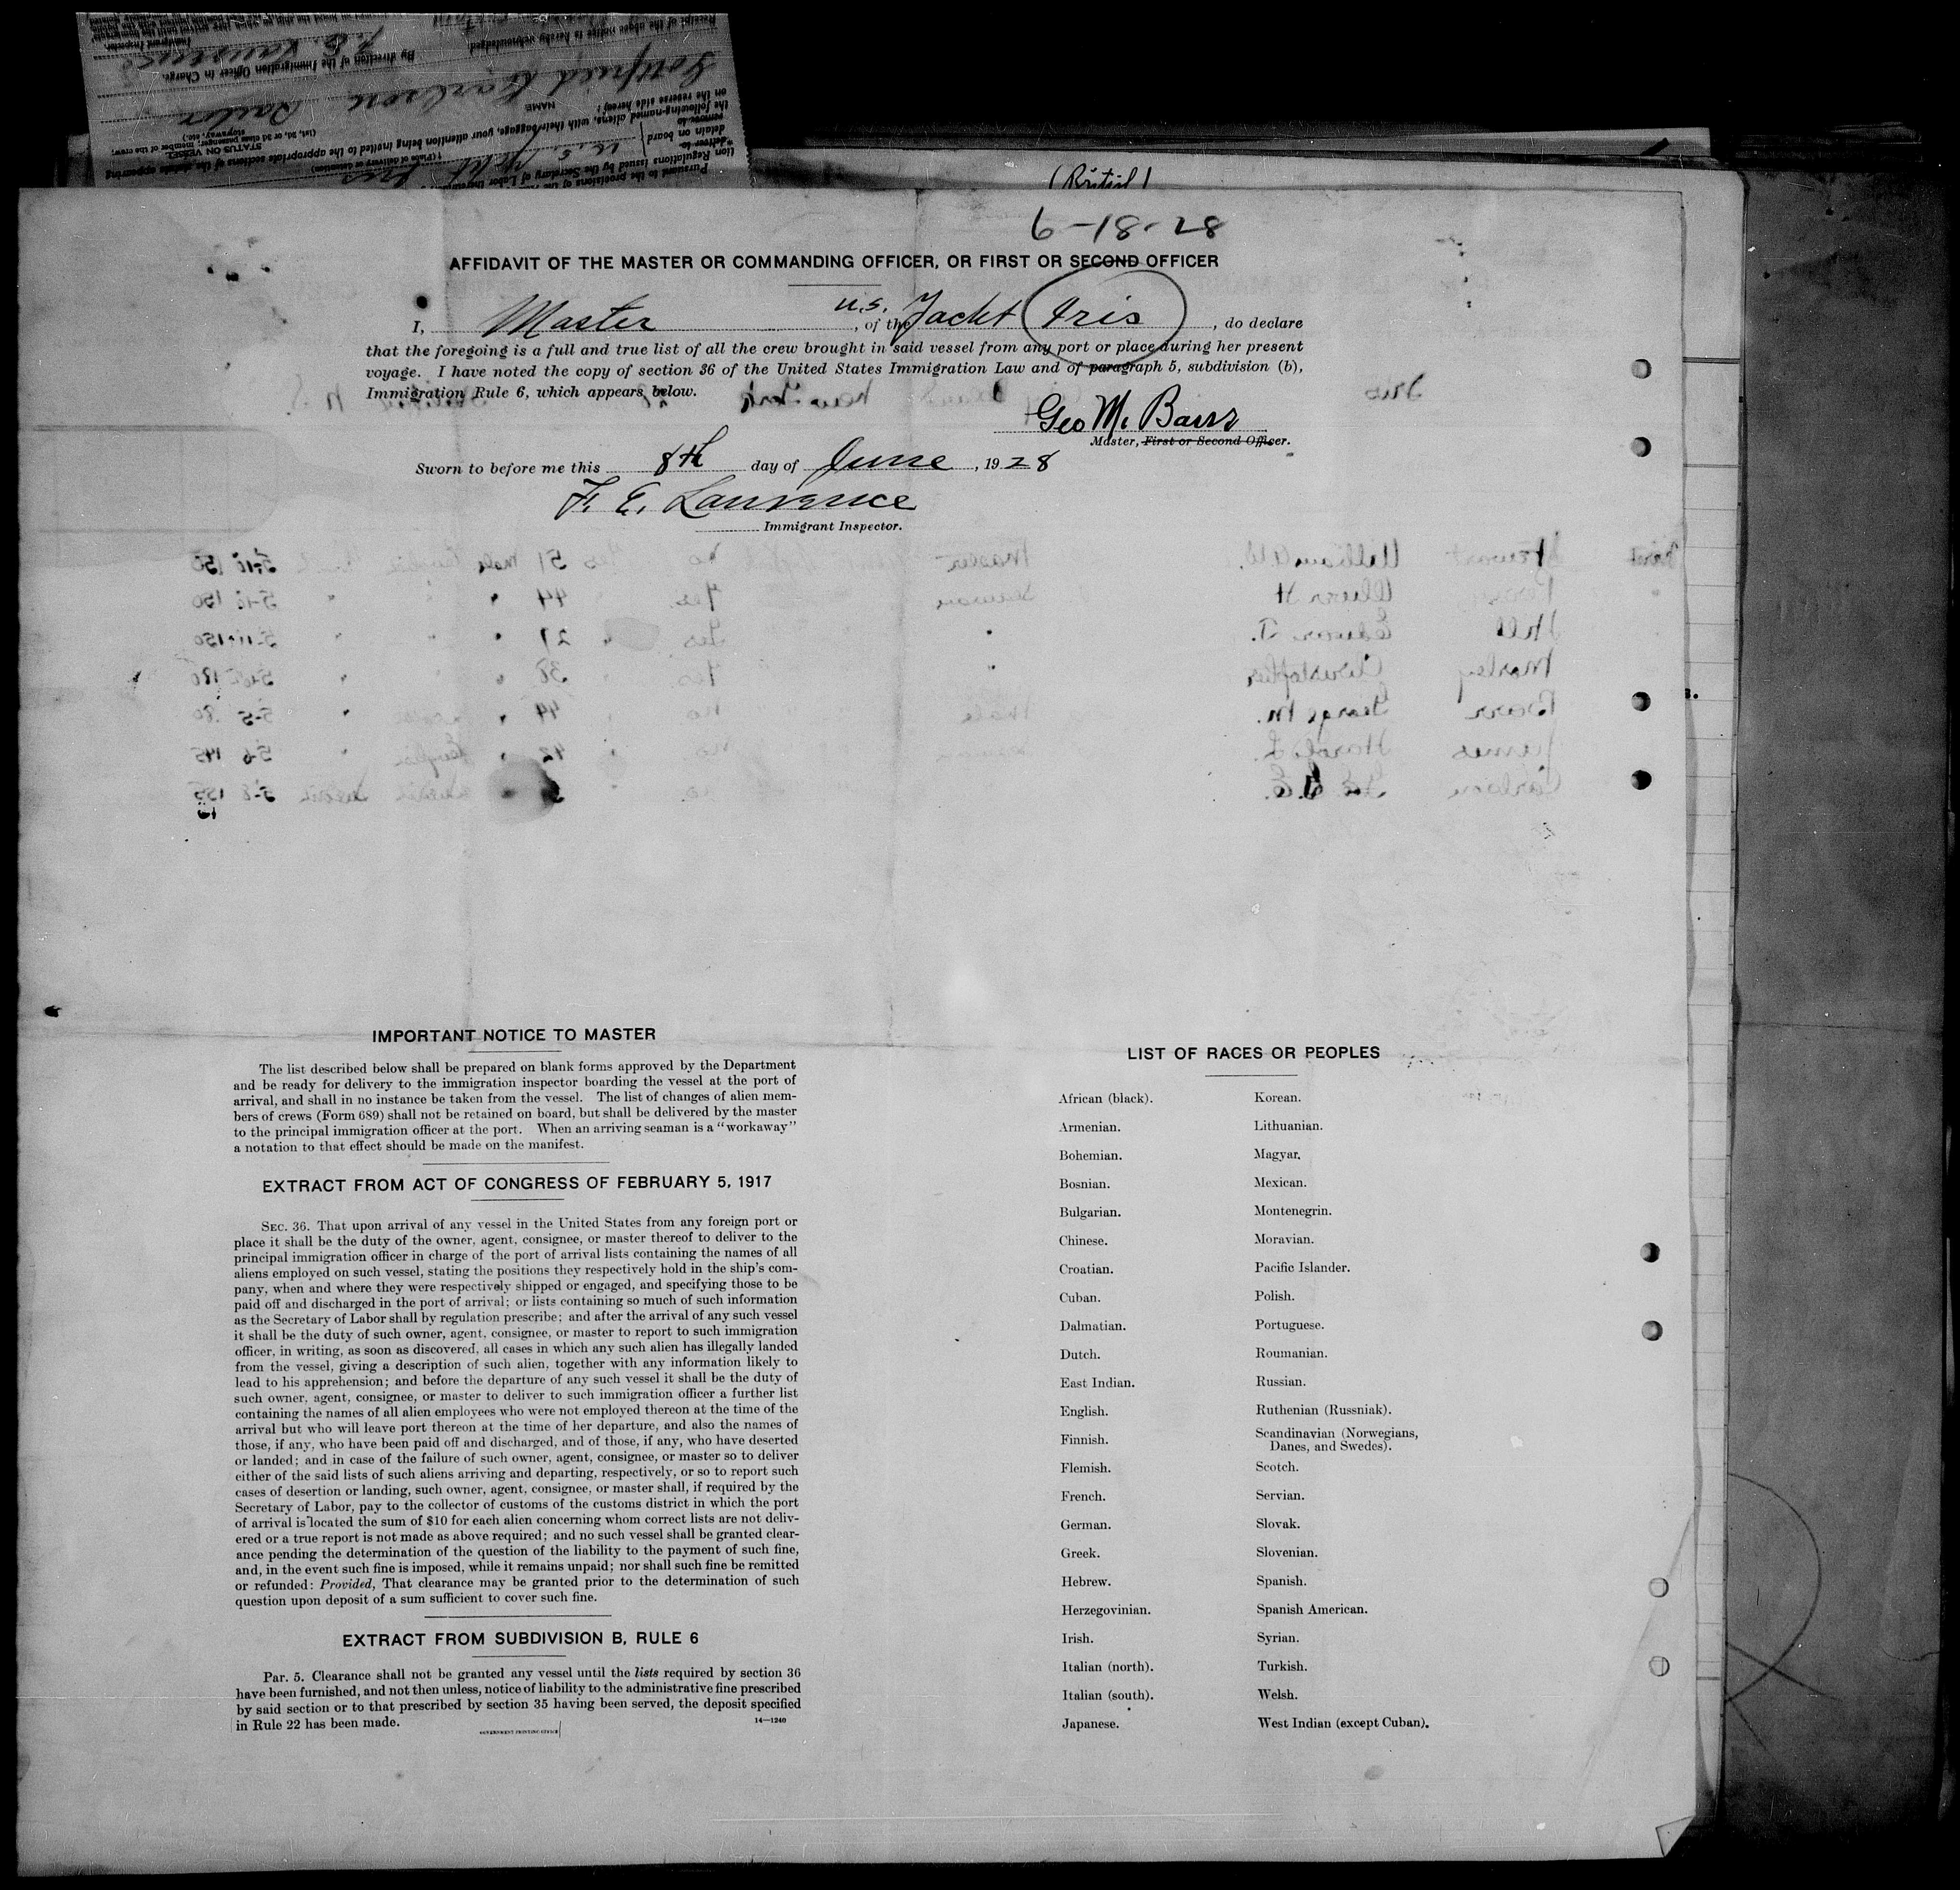 (British)
6-18-28
AFFIDAVIT OF THE MASTER OR COMMANDING OFFICER, OR FIRST OR SECOND OFFICER
I, Master, of the U.S. Yacht Iris, do declare
that the foregoing is a full and true list of all the crew brought in said vessel from any port or place during her present
voyage. I have noted the copy of section 36 of the United States Immigration Law and of paragraph 5, subdivision (b),
Immigration Rule 6, which appears below.
Geo M. Barr
Master, First or Second Officer.
Sworn to before me this 8th day of June, 1928
F. E. Lawrence
Immigrant Inspector.
IMPORTANT NOTICE TO MASTER
The list described below shall be prepared on blank forms approved by the Department
and be ready for delivery to the immigration inspector boarding the vessel at the port of
arrival, and shall in no instance be taken from the vessel. The list of changes of alien mem-
bers of crews (Form 689) shall not be retained on board, but shall be delivered by the master
to the principal immigration officer at the port. When an arriving seaman is a "workaway"
a notation to that effect should be made on the manifest.
EXTRACT FROM ACT OF CONGRESS OF FEBRUARY 5, 1917
SEC. 36. That upon arrival of any vessel in the United States from any foreign port or
place it shall be the duty of the owner, agent, consignee, or master thereof to deliver to the
principal immigration officer in charge of the port of arrival lists containing the names of all
aliens employed on such vessel, stating the positions they respectively hold in the ship's com-
pany, when and where they were respectively shipped or engaged, and specifying those to be
paid off and discharged in the port of arrival; or lists containing so much of such information
as the Secretary of Labor shall by regulation prescribe; and after the arrival of any such vessel
it shall be the duty of such owner, agent, consignee, or master to report to such immigration
officer, in writing, as soon as discovered, all cases in which any such alien has illegally landed
from the vessel, giving a description of such alien, together with any information likely to
lead to his apprehension; and before the departure of any such vessel it shall be the duty of
such owner, agent, consignee, or master to deliver to such immigration officer a further list
containing the names of all alien employees who were not employed thereon at the time of the
arrival but who will leave port thereon at the time of her departure, and also the names of
those, if any, who have been paid off and discharged, and of those, if any, who have deserted
or landed; and in case of the failure of such owner, agent, consignee, or master so to deliver
either of the said lists of such aliens arriving and departing, respectively, or so to report such
cases of desertion or landing, such owner, agent, consignee, or master shall, if required by the
Secretary of Labor, pay to the collector of customs of the customs district in which the port
of arrival is located the sum of $10 for each alien concerning whom correct lists are not deliv-
ered or a true report is not made as above required; and no such vessel shall be granted clear-
ance pending the determination of the question of the liability to the payment of such fine,
and, in the event such fine is imposed, while it remains unpaid; nor shall such fine be remitted
or refunded: Provided, That clearance may be granted prior to the determination of such
question upon deposit of a sum sufficient to cover such fine.
EXTRACT FROM SUBDIVISION B, RULE 6
Par. 5. Clearance shall not be granted any vessel until the lists required by section 36
have been furnished, and not then unless, notice of liability to the administrative fine prescribed
by said section or to that prescribed by section 35 having been served, the deposit specified
in Rule 22 has been made.
GOVERNMENT PRINTING OFFICE 14—1240
LIST OF RACES OR PEOPLES
African (black). Korean.
Armenian. Lithuanian.
Bohemian. Magyar.
Bosnian. Mexican.
Bulgarian. Montenegrin.
Chinese. Moravian.
Croatian. Pacific Islander.
Cuban. Polish.
Dalmatian. Portuguese.
Dutch. Roumanian.
East Indian. Russian.
English. Ruthenian (Russniak).
Finnish. Scandinavian (Norwegians,
Danes, and Swedes).
Flemish. Scotch.
French. Servian.
German. Slovak.
Greek. Slovenian.
Hebrew. Spanish.
Herzegovinian. Spanish American.
Irish. Syrian.
Italian (north). Turkish.
Italian (south). Welsh.
Japanese. West Indian (except Cuban).